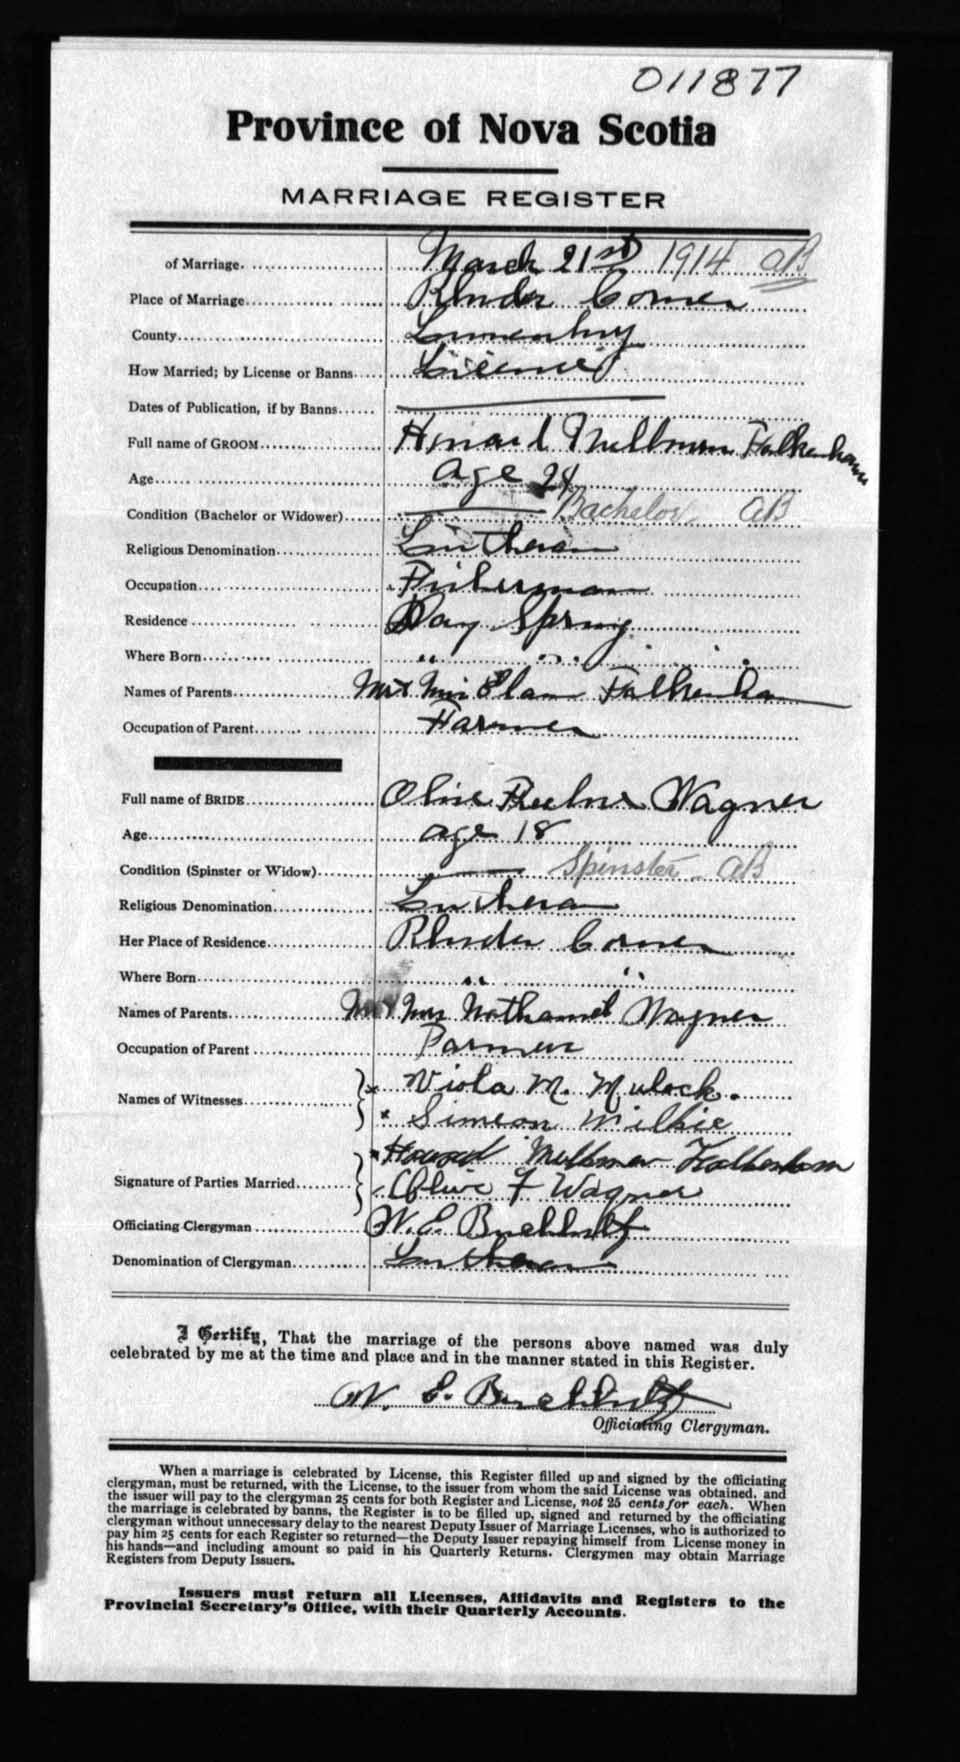 011877
Province of Nova Scotia
MARRIAGE REGISTER
of Marriage March 21st 1914 AB
Place of Marriage Rhuder Corner
County Lunenburg
How Married; by License or Banns License
Dates of Publication, if by Banns
Full name of GROOM Howard Falkenham
Age age 24
Condition (Bachelor or Widower) Bachelor AB
Religious Denomination Lutheran
Occupation Fisherman
Residence Day Spring
Where Born " " "
Names of Parents Mr & Mrs Elam Falkenham
Occupation of Parent Farmer
Full name of BRIDE Olive Wagner
Age age 18
Condition (Spinster or Widow) Spinster - AB
Religious Denomination Lutheran
Her Place of Residence Rhuder Corner
Where Born " "
Names of Parents Mr & Mrs Nathaniel Wagner
Occupation of Parent Farmer
Names of Witnesses x Viola M. Mulock.
x Simeon Wilkie
Signature of Parties Married x Howard Falkenham
Olive F Wagner
Officiating Clergyman W. E. Buchholtz
Denomination of Clergyman Lutheran
I Certify, That the marriage of the persons above named was duly
celebrated by me at the time and place and in the manner stated in this Register.
W. E. Buchholtz
Officiating Clergyman.
When a marriage is celebrated by License, this Register filled up and signed by the officiating
clergyman, must be returned, with the License, to the issuer from whom the said License was obtained, and
the issuer will pay to the clergyman 25 cents for both Register and License, not 25 cents for each. When
the marriage is celebrated by banns, the Register is to be filled up, signed and returned by the officiating
clergyman without unnecessary delay to the nearest Deputy Issuer of Marriage Licenses, who is authorized to
pay him 25 cents for each Register so returned—the Deputy Issuer repaying himself from License money in
his hands—and including amount so paid in his Quarterly Returns. Clergymen may obtain Marriage
Registers from Deputy Issuers.
Issuers must return all Licenses, Affidavits and Registers to the
Provincial Secretary's Office, with their Quarterly Accounts.